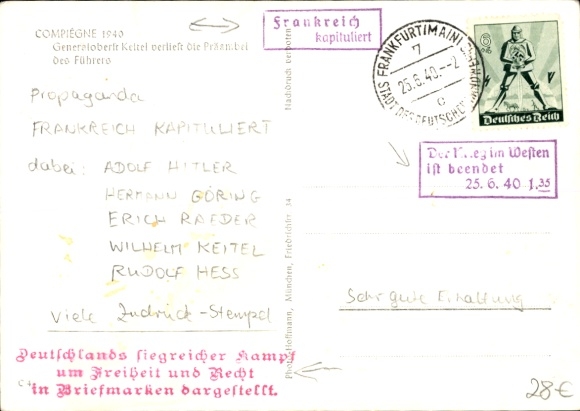 COMPIÈGNE 1940
Generaloberst Keitel verließt die Präambel
des Führers
Frankreich
kapituliert
Nachdruck verboten
FRANKFURT (MAIN)
7
25.6.40.--2
c
STADT DES DEUTSCHEN
6
Deutsches Reich
Propaganda
FRANKREICH KAPITULIERT
dabei: ADOLF HITLER
HERMANN GÖRING
ERICH RAEDER
WILHELM KEITEL
RUDOLF HESS
viele Zudruck-Stempel
Der Krieg im Westen
ist beendet
25. 6. 40 1.35
Photo Hoffmann, München, Friedrichstr. 34
Sehr gute Erhaltung
Deutschlands siegreicher Kampf
um Freiheit und Recht
in Briefmarken dargestellt.
28€